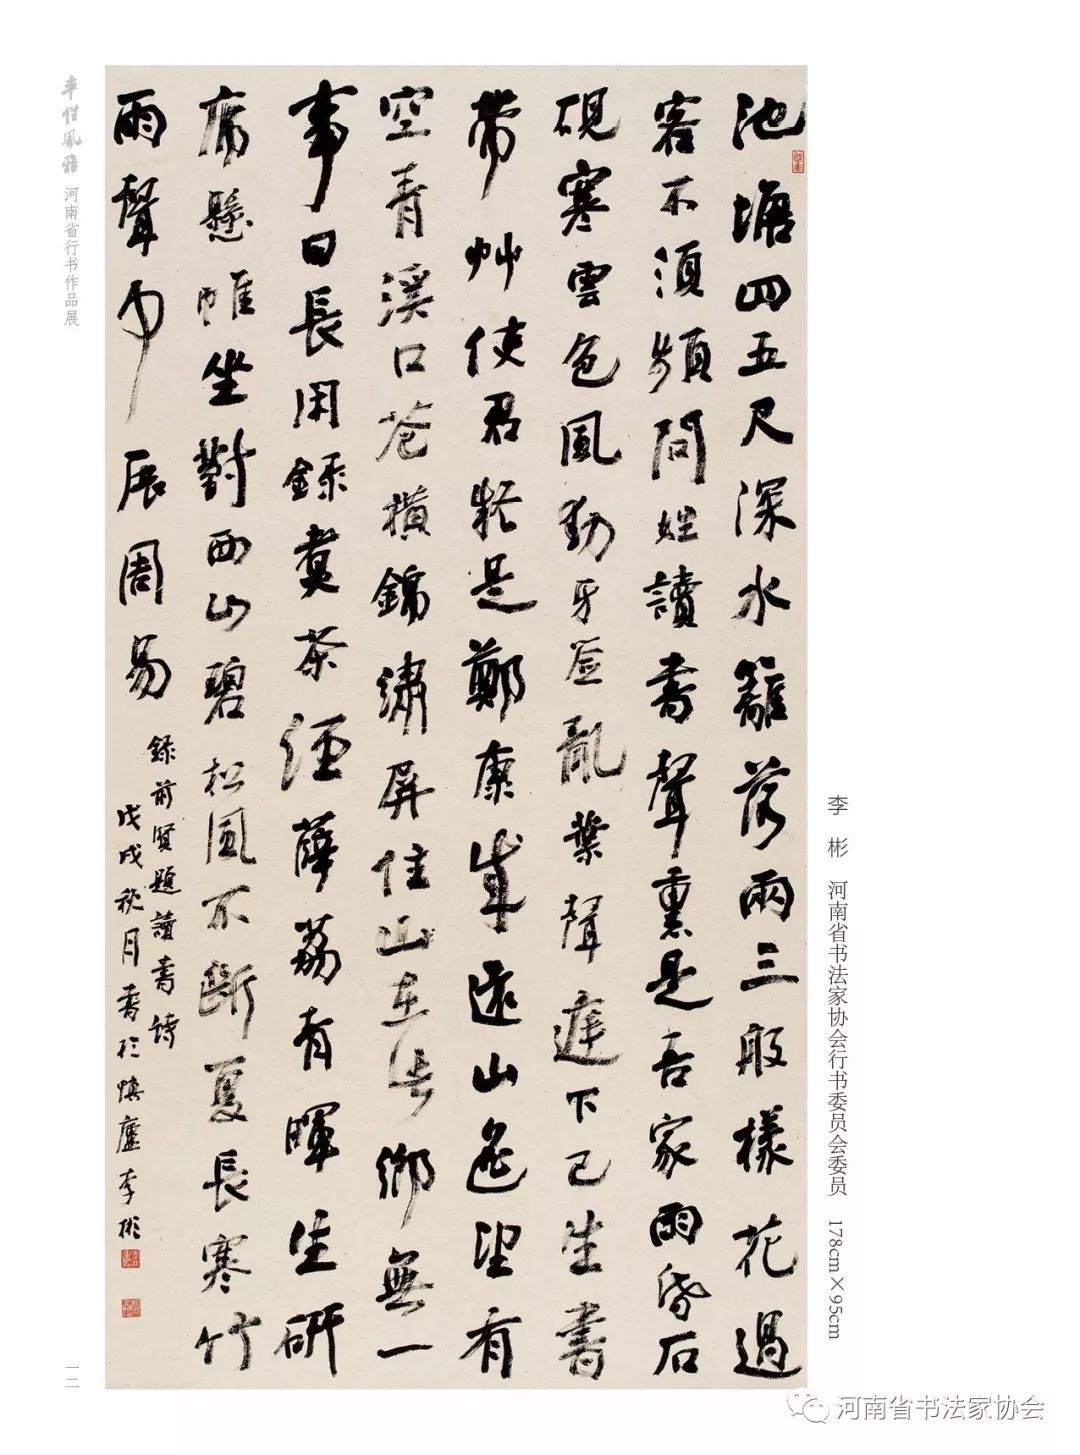 池塘四五尺深水籬落兩三般樣花過
客不須頻問姓讀書聲裏是吾家雨昏石
硯寒雲色風動牙签亂葉聲庭下已生書
帶艸使君疑是鄭康成遠山遙望有
空青溪口苍橫錦繡屏住山在鄉無一
事日長閑錄煮茶經薜荔有暉生研
席懸帷坐對西山碧松風不斷夏長寒竹
雨聲中展周易
錄前賢題讀書詩
戊戌秋月書於慎廬李彬
李彬 河南省书法家协会行书委员会委员 178cm×95cm
率性風雅 河南省行书作品展
一二
河南省书法家协会